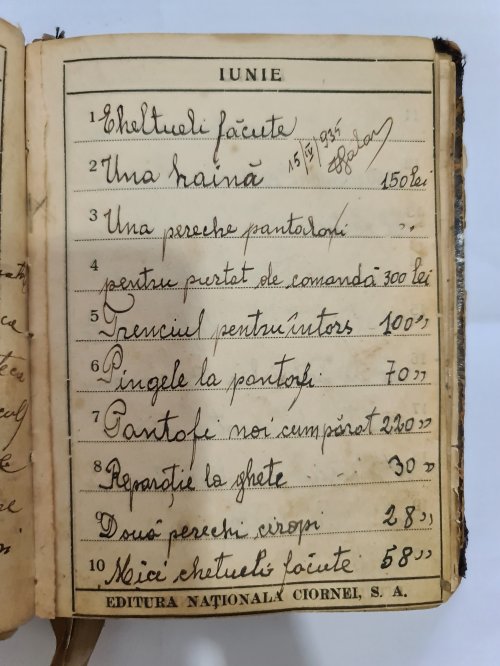 IUNIE
1 Cheltueli făcute
15/IV/935
2 Una haină 150 lei
3 Una pereche pantaloni „
4 pentru purtat de comandă 300 lei
5 Trenciul pentru întors 100 „
6 Pingele la pantofi 70 „
7 Pantofi noi cumpărat 220 „
8 Reparație la ghete 30 „
Două perechi ciropi 28 „
10 Mici chetueli făcute 58 „
EDITURA NAȚIONALA CIORNEI, S. A.